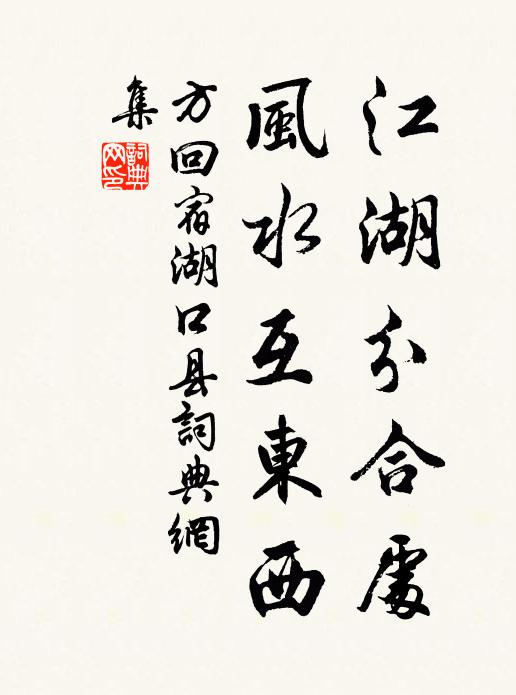 江湖分合處
風水互東西
方回宿湖口县詞典網
集
詞典
网印